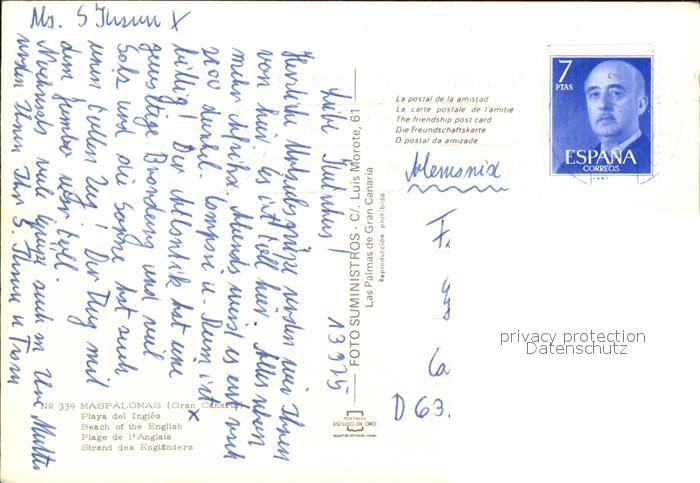 Liebe
13 9 75
Herzliche Urlaubsgrüße senden wir Ihnen
von hier. Es ist toll hier. Alles schon
mehr Afrika. Abends wird es erst nach
2100 dunkel. u. Rum ist
billig! Der Atlantik hat eine
gewaltige Brandung und viel
Salz und die Sonne hat auch
einen tollen Zug! Der Flug mit
dem Jumbo war toll.
Nochmals viele Grüße auch an Ihre Mutter
senden Ihnen Ihr S. u Frau
La postal de la amistad
La carte postale de l'amitié
The friendship post card
Die Freundschaftskarte
O postal da amizade
7
PTAS
ESPAÑA
CORREOS
D 63.
FOTO SUMINISTROS - C/. Luis Morote, 61
Las Palmas de Gran Canaria
Reproducción prohibida
Nº 339 MASPALOMAS (Gran Canaria)
Playa del Inglés
Beach of the English
Plage de l'Anglais
Strand des Engländers
POSTALES
ESCUDO DE ORO
privacy protection
Datenschutz